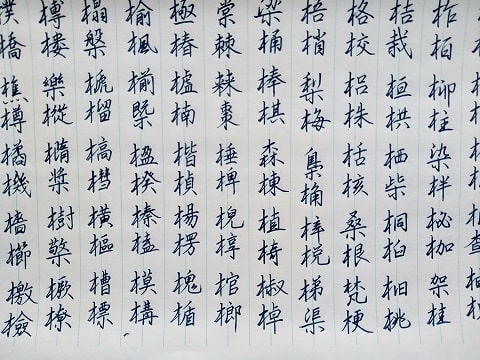 柞柏柳柱染柈柲枷架桂
桔栽桓栱栖柴桐桕桃
格校株栝核桑根梵梗
梧梢梨梅梟桷梓梲梯渠
桶棒棋森棟植椅椒棹
棠棘棶棗棰椑棿椁棺榔
極椿楠楷楨楊楞槐楯
榆楓椾楹楑榛榼模構
榻槃榹榴槁槥橫樞槽標
槫樓樂樅橢槳樹檠橛橑
樸橋樵樽橘機檣櫛檄檢